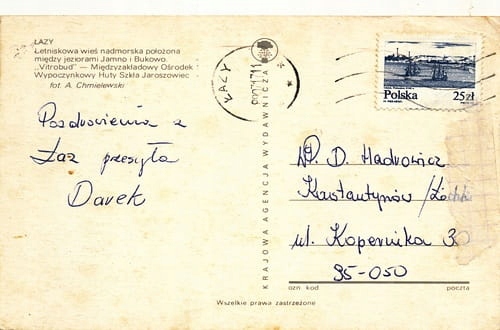 ŁAZY
Letniskowa wieś nadmorska położona
między jeziorami Jamno i Bukowo.
„Vitrobud” — Międzyzakładowy Ośrodek
Wypoczynkowy Huty Szkła Jaroszowiec
fot. A. Chmielewski
Pozdrowienia z
Łaz przesyła
Darek
KRAJOWA AGENCJA WYDAWNICZA
ŁAZY
Polska
25zł
W.P. D. Hadrowicz
Konstantynów /Łódzki
ul. Kopernika 30
95-050
ozn kod
poczta
Wszelkie prawa zastrzeżone